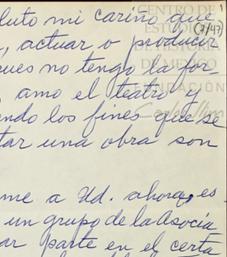 luto mi cariño que
, actuar o producir
ues no tengo la for-
, amo el teatro
endo los fines que se
tar una obra son
me a Ud. ahora, es
un grupo de la Asocia
ar parte en el certa
CENTRO DE
(7/47)
DE MÉXICO